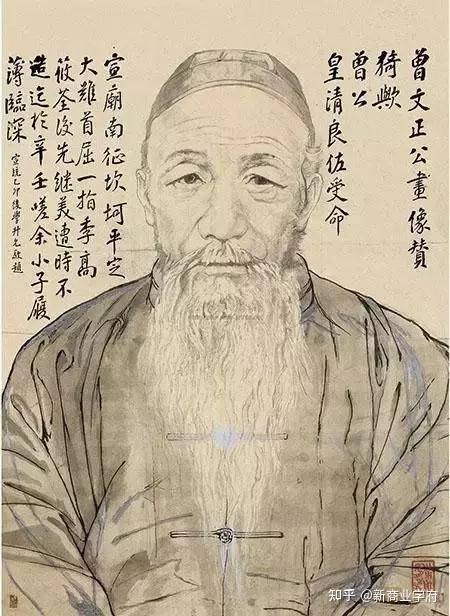 曾文正公畫像贊
猗歟
曾公
皇清良佐受命
宣廟南征坎坷平定
大難首屈一指季高
筱荃後先繼美遭時不
造迄於辛壬嗟余小子履
薄臨深
宣統乙卯後學升允敬題
知乎 @新商业学府